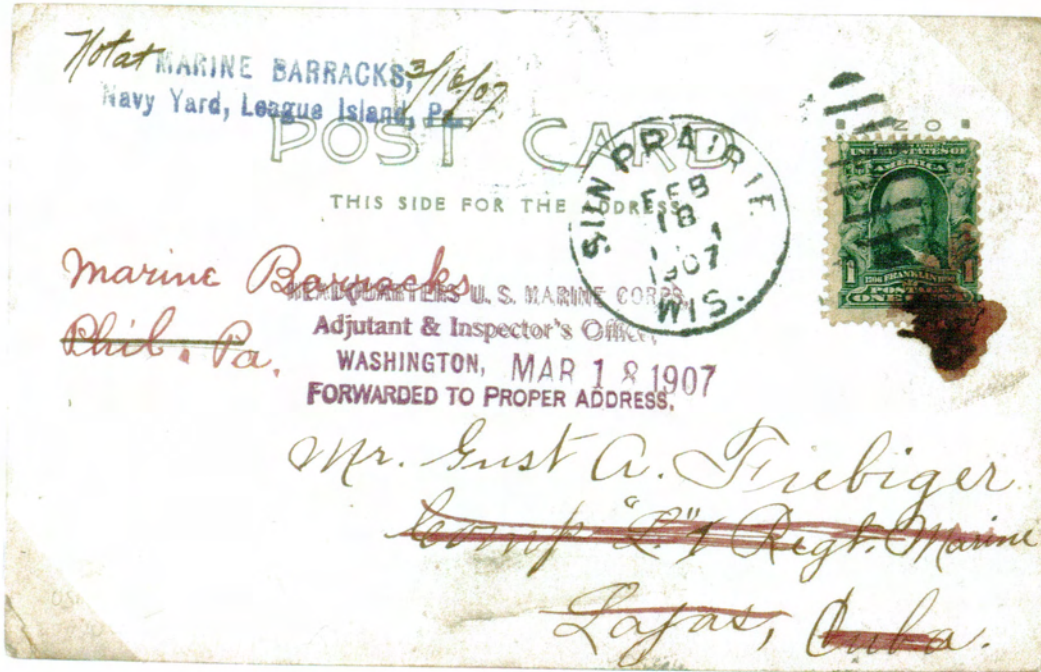 Not at MARINE BARRACKS, 3/16/07
Navy Yard, League Island, Pa.
POST CARD
THIS SIDE FOR THE ADDRESS
SUN PRAIRIE
FEB
18
1907
WIS.
AZO
UNITED STATES OF
AMERICA
1 FRANKLIN 1
POSTAGE
ONE
Marine Barracks
Phil. Pa.
HEADQUARTERS U. S. MARINE CORPS,
Adjutant & Inspector's Office,
WASHINGTON, MAR 18 1907
FORWARDED TO PROPER ADDRESS.
Mr. Gust A. Fiebiger
Comp "L" 1 Regt. Marine
Lajas, Cuba.